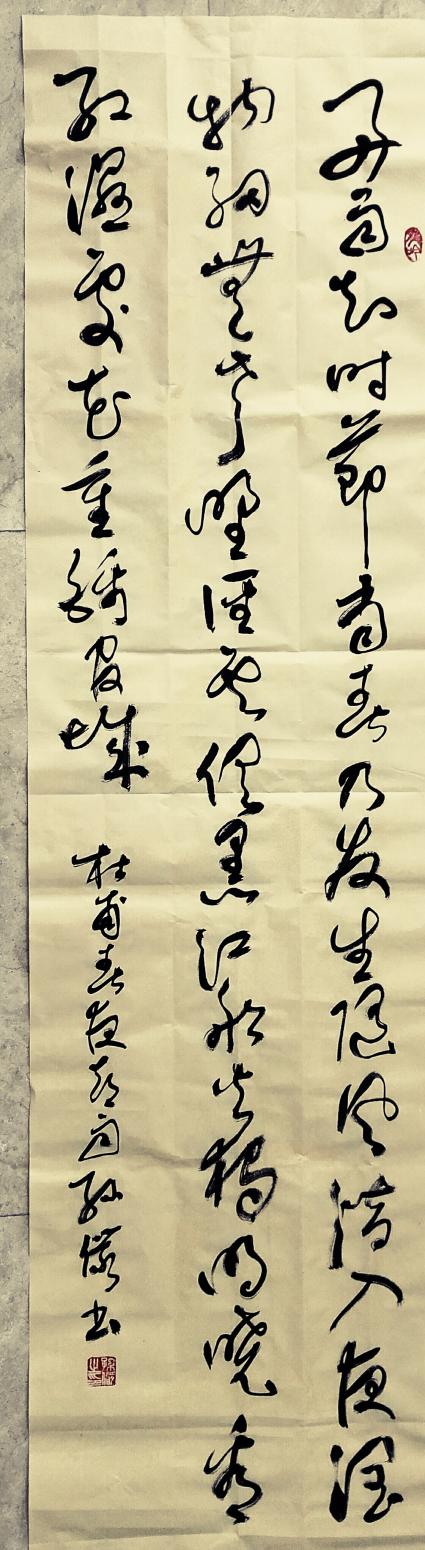 好雨知时節當春乃发生随风潜入夜润
物細無声野徑云俱黑江船火獨明曉看
红濕處花重錦官城
杜甫春夜喜雨孙書